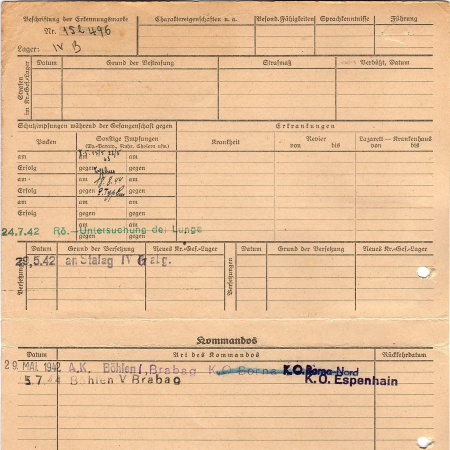 Beschriftung der Erkennungsmarke
Nr. 152496
Lager: IV B
Charaktereigenschaften u. a.
Besond. Fähigkeiten
Sprachkenntnisse
Führung
Strafen im Kr.-Gef.-Lager
Datum
Grund der Bestrafung
Strafmaß
Verbüßt, Datum
Schutzimpfungen während der Gefangenschaft gegen
Erkrankungen
Pocken
Sonstige Impfungen
(Ty.-Paraty., Ruhr, Cholera usw.)
Krankheit
Revier
von bis
Lazarett – Krankenhaus
von bis
am am am
Erfolg gegen gegen
am am am
Erfolg gegen gegen
am am am
Erfolg gegen gegen
am am am
Erfolg gegen gegen
24.7.42 Rö.-Untersuchung der Lunge
Versetzungen
Datum
Grund der Versetzung
Neues Kr.-Gef.-Lager
Versetzungen
Datum
Grund der Versetzung
Neues Kr.-Gef.-Lager
29.5.42 an Stalag IV G
Kommandos
Datum
Art des Kommandos
Rückkehrdatum
29. MAI 1942 A.K. Böhlen, Brabag K.O. Borna K.O. Borna-Nord
5.7.44 Böhlen V Brabag K.O. Espenhain